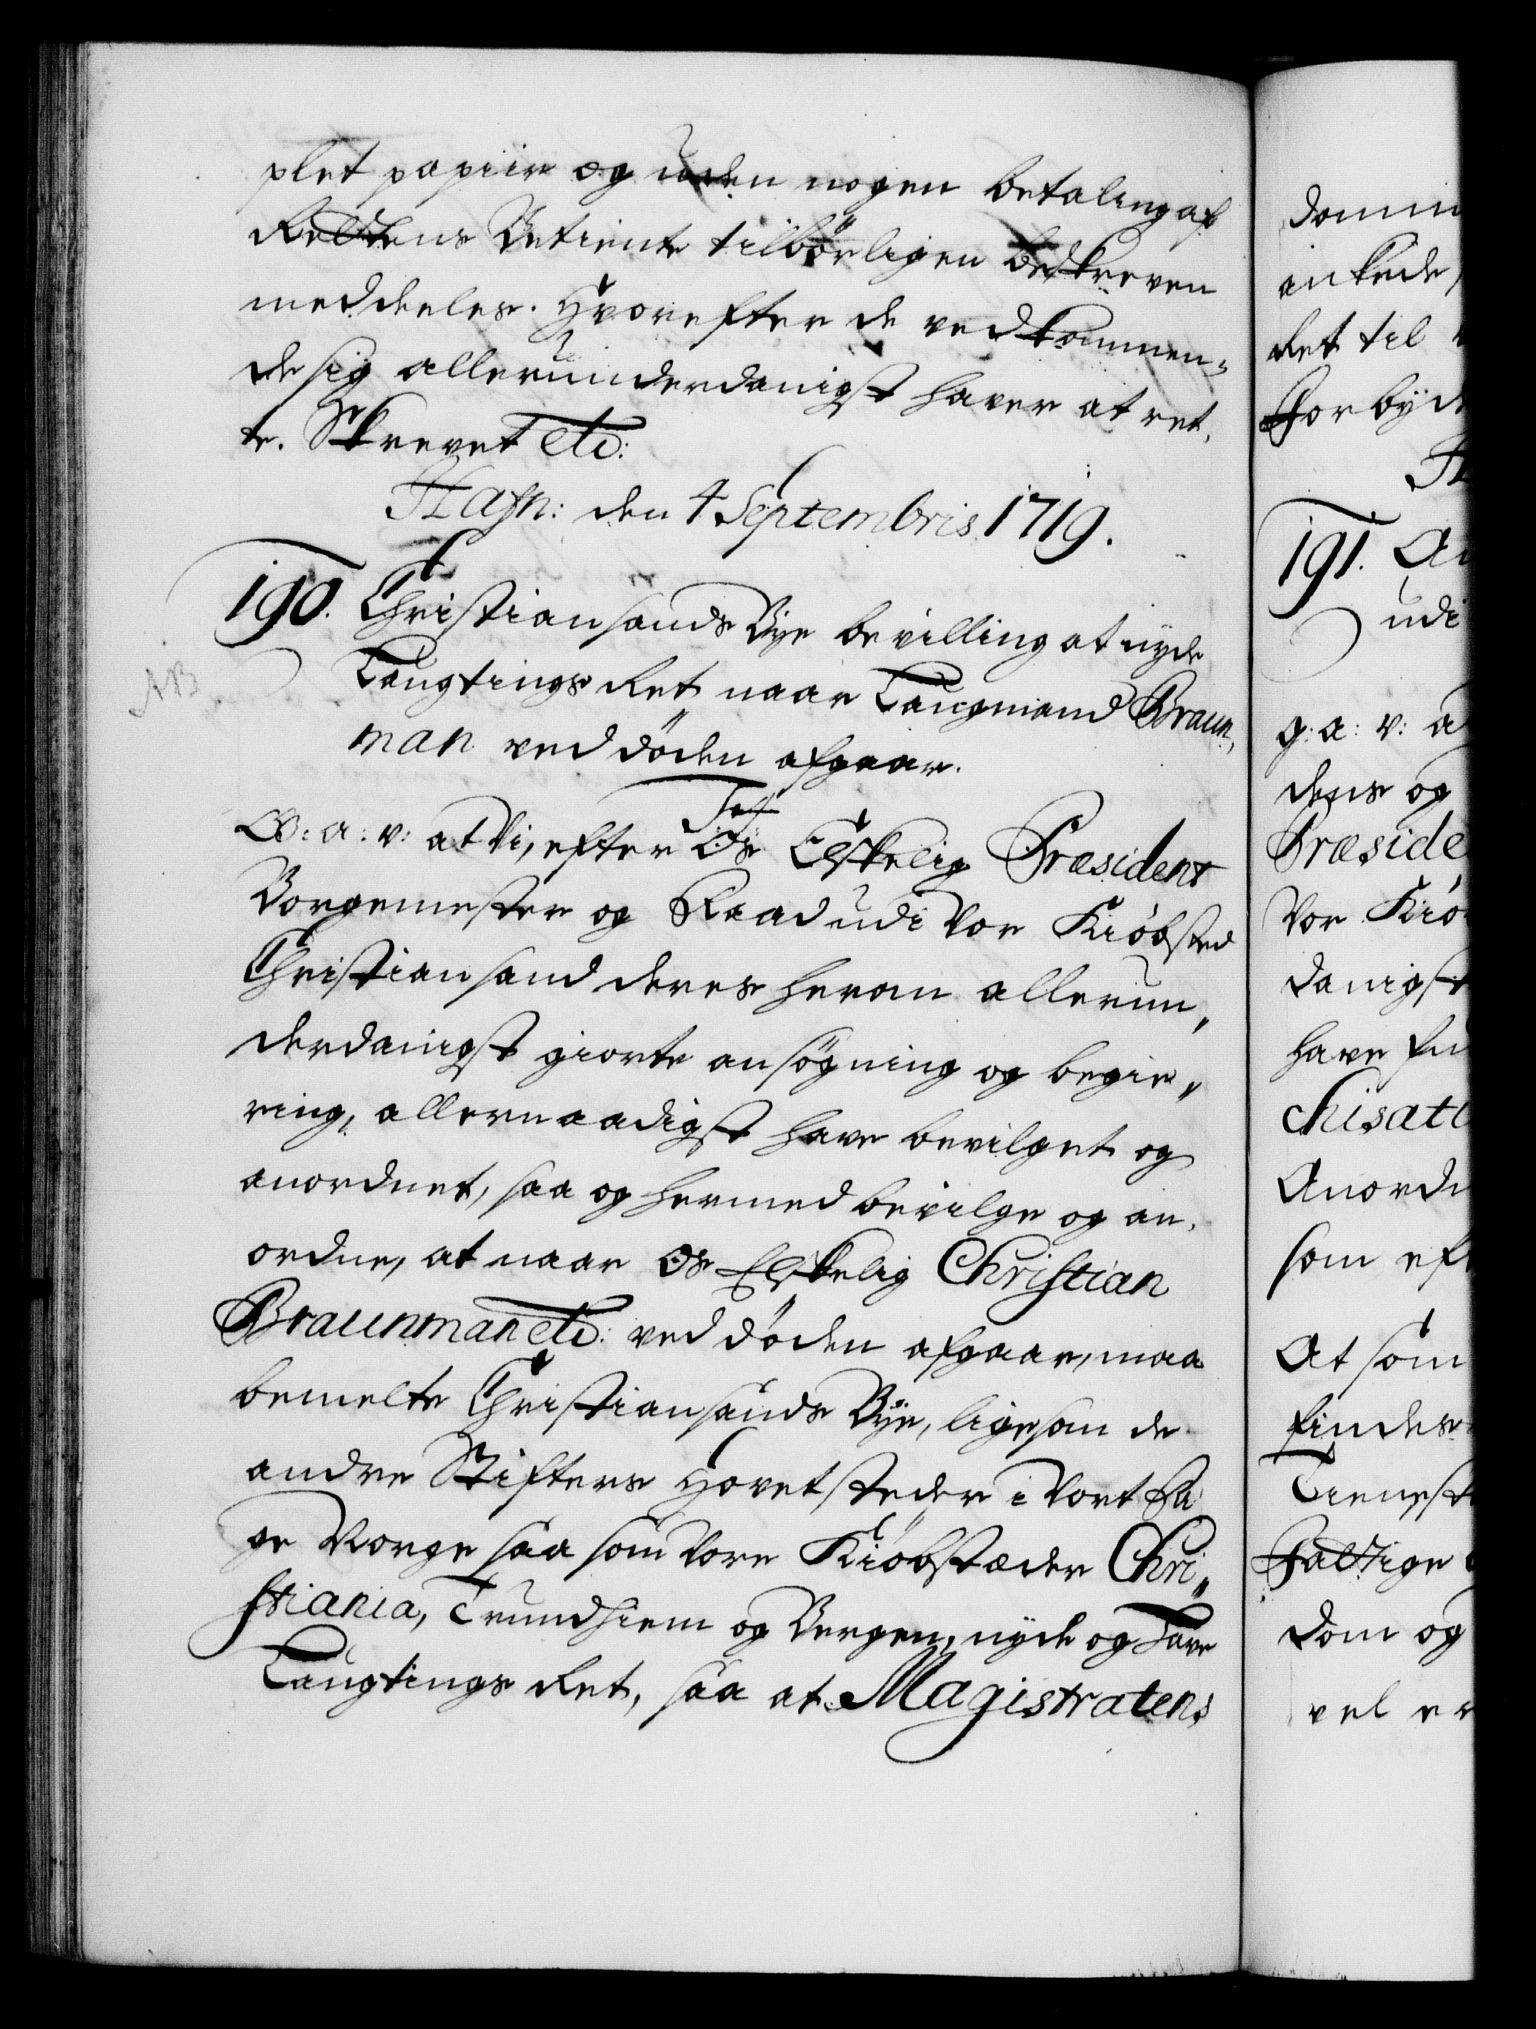 plet papiir og uden nogen betaling af
Rettens Betiente tilbørligen beskreven
meddeeles. Hvorefter de vedkommen-
de sig allerunderdanigst haver at ret-
te. Skrevet etc:
Hafn: den 4 Septembris 1719.
190. Christiansands Bye bevilling at nyde
Laugtings Ret naar Laugmand Braun-
man ved døden afgaar.
NB
G: a: v: at Vi, efter Os Elskelig Præsident
Borgemester og Raad udi Vor Kiøbsted
Christiansand deres herom allerun-
derdanigst giorte ansøgning og begie-
ring, allernaadigst have bevilget og
anordnet, saa og hermed bevilge og an-
ordne, at naar Os Elskelig Christian
Braunman etc: ved døden afgaar, maa
bemelte Christiansands Bye, ligesom de
andre Stifters Hovetsteder i Vort Ri-
ge Norge saa som Vore Kiøbstæder Chri-
stiania, Trundhiem og Bergen, nyde og have
Laugtings Ret, saa at Magistratens
domm
ankede,
Ret til
forbyd
191. An
udi
g: a: v: a
dens og
Præside
Vor Kiø
danigst
have fu
chisati
Anordn
som eft
At som
findes
Tienest
faltige
dom og
vel er